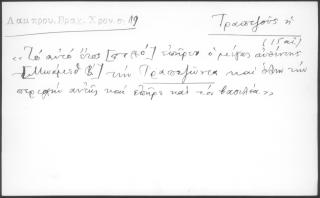 Λαμπρου. Βραχ. Χρον. σ. 19
Τραπεζοῦς ἡ
(15 αἰ)
«Τὸ αὐτὸ ἔτος [͵ςϠο'] ἐπῆρεν ὁ μέγας αὐθέντης
[Μωάμεθ Β'] τὴν Τραπεζοῦντα καὶ ὅλην τὴν
περιοχὴν αὐτῆς καὶ ἐπῆρε καὶ τὸν βασιλέα»